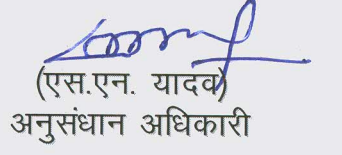 (एस.एन. यादव)
अनुसंधान अधिकारी